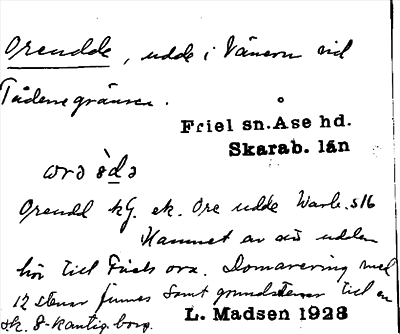 Oreudde, udde i Vänern vid
Tådene gränsen.
Friel sn. Åse hd.
Skarab. län
Oreudd kg. ek. Ore udde Warb. s16
Namnet av att udden
hör till Friels ora. Domarering med
12 stenar finnes samt grundstenar till en
sk. 8-kantig borg.
L. Madsen 1928